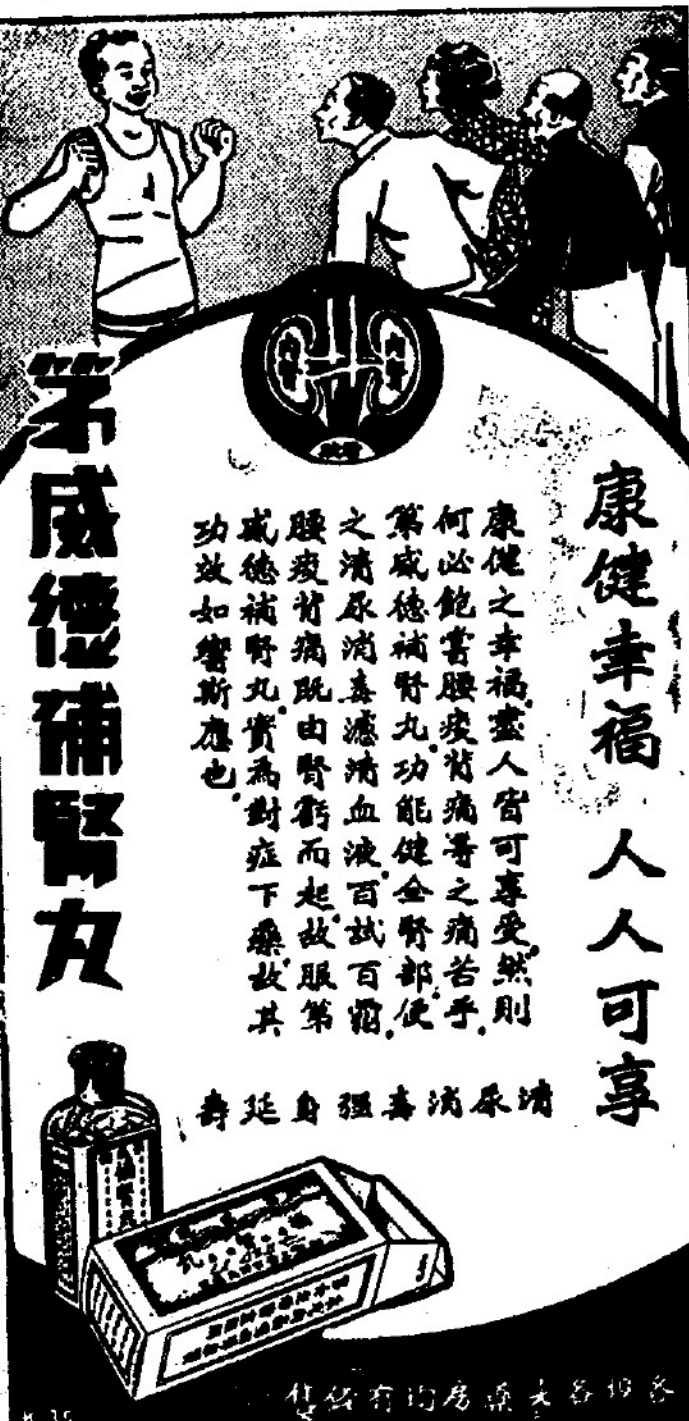 康健幸福 人人可享
康健之幸福.盡人皆可享受.然則
何必飽嘗腰痠背痛等之痛苦乎.
第威德補腎丸.功能健全腎部.使
之清尿消毒濾清血液.百試百霛.
腰痠背痛既由腎虧而起.故服第
威德補腎丸.實為對症下藥.故其
功效如響斯應也.
清尿消毒强身延壽
第威德補腎丸
內腎
內腎
各埠各大藥房均有代售